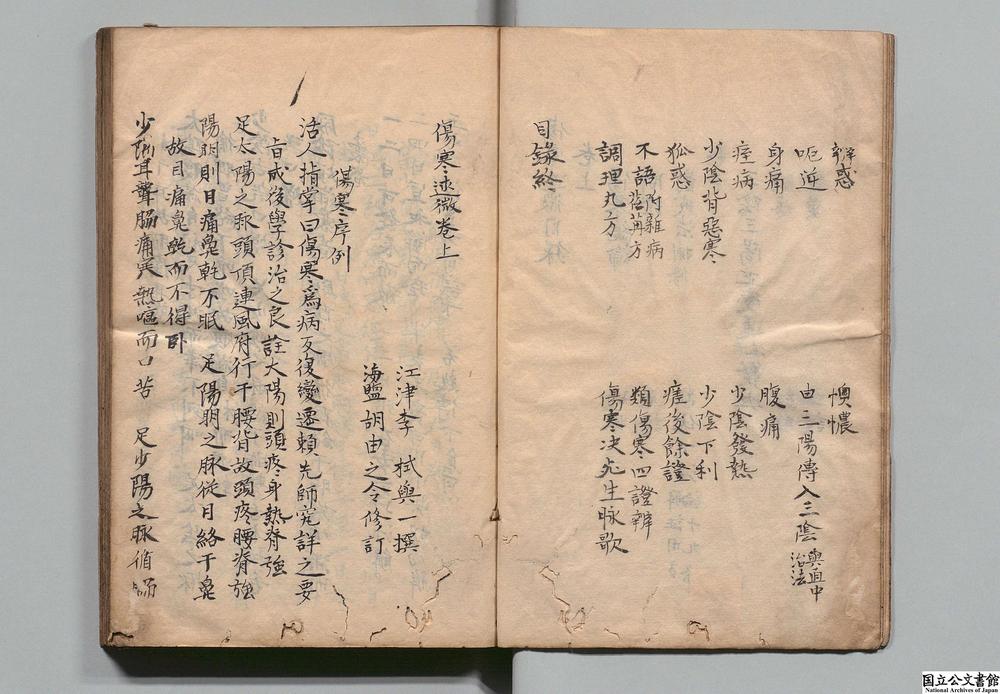 辧惑
懊憹
呃逆
由三陽傳入三陰與直中治法
身痛
腹痛
痓病
少陰發熱
少陰背惡寒
少陰下利
狐惑
瘥後餘證
不語附雜病舊苒方
類傷寒四證辨
調理丸方
傷寒决死生脉歌
目錄終
傷寒述微卷上
江津李 栻與一撰
海鹽胡由之令修訂
傷寒序例
活人指掌曰傷寒爲病反復變遷賴先師究詳之要
旨成後學診治之良詮大陽則頭疼身熱脊強
足太陽之脉頭頂連風府行于腰背故頭疼腰脊強
陽明則目痛鼻乾不眠 足陽明之脉從目絡于鼻
故目痛鼻乾而不得卧
少陽耳聾脇痛寒熱嘔而口苦 足少陽之脉循
国立公文書館
National Archives of Japan